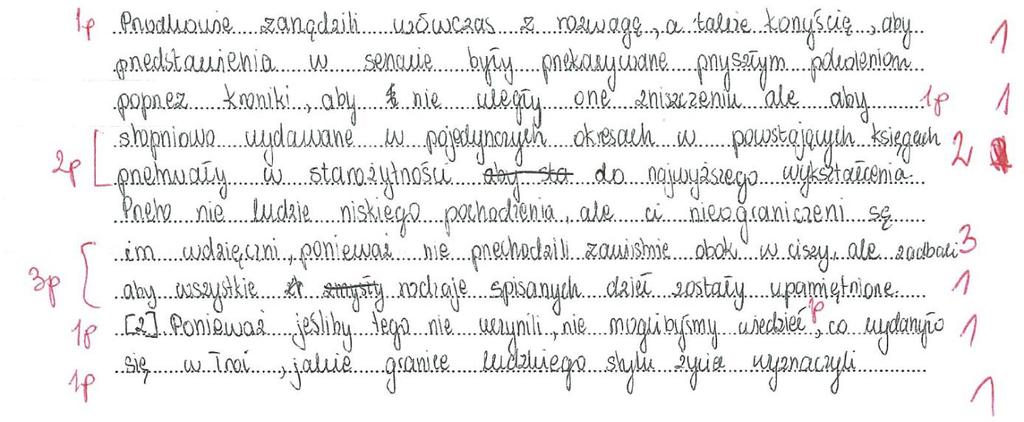 1p Przodkowie zarządzili wówczas z rozwagę, a także konyścię, aby 1
przedstawienia w senacie były przekazywane przyszłym pokoleniom
poprzez kroniki, aby nie uległy one zniszczeniu ale aby 1p 1
stopniowo wydawane w pojedynczych okresach w powstających księgach 2
2p przetrwały w starożytności aby sta do najwyższego wykształcenia.
Przeto nie ludzie niskiego pochodzenia, ale ci nieograniczeni są
im wdzięczni, ponieważ nie przechodzili zawistnie obok w ciszy, ale zadbali 3
3p aby wszystkie zmysły rodzaje spisanych dzieł zostały upamiętnione. 1
1p [2] Ponieważ jeśliby tego nie uczynili, nie moglibyśmy wiedzieć 1p, co wydarzyło 1
1p się w Troi, jakie granice ludzkiego stylu życia wyznaczyli 1